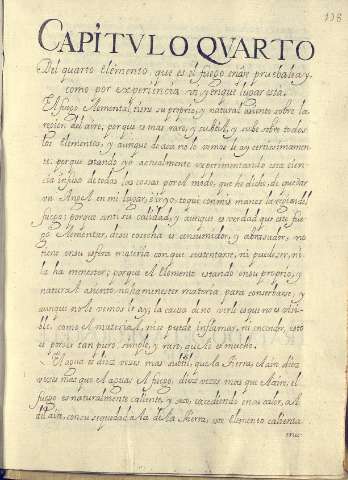 108
CAPITVLO QVARTO
Del quarto Elemento, que es el fuego
como por experiencia y en que lugar esta.
El fuego Elemental, tiene su proprio, y natural asiento sobre la
region del aire, porque es mas raro, y subtil, y sube sobre todos
los Elementos, y aunque de aca no lo vemos le ay certissimamen-
te; porque estando yo actualmente experimentando esta cien-
cia de todas las cosas por el modo, que he dicho, de guiar
un Angel en mi lugar, toque con mis manos la region del
fuego: porque senti su calidad, y aunque es verdad que este fue-
go Elementar, de su cosecha es consumidor, y abrasador, no
tiene en su esfera materia con que sustentarse, ni puede ser, ni
la ha menester; porque el Elemento estando en su proprio, y
natural asiento, no ha menester materia, para conserbarse, y
aunque no le vemos le ay; la causa de no verle es que no es visi-
ble, como el material, ni se puede inflamar, ni encender, esto
es por ser tan puro, simple, y raro, que lo es mucho.
El agua es diez veces mas subtil, que la tierra, el aire diez
veces mas que el agua, y el fuego, diez veces mas que el aire, el
fuego es naturalmente caliente, y seco, excediendo en su calor, a el
del aire, con su sequedad a la de la tierra, un Elemento calienta